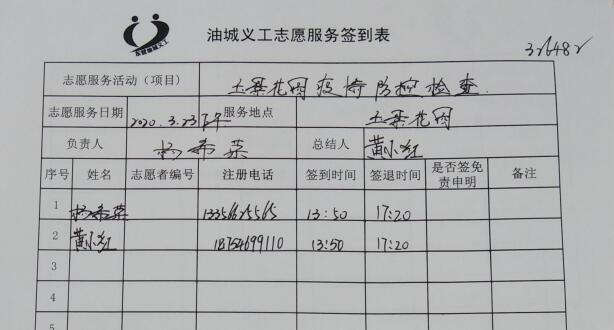 油城义工志愿服务签到表
志愿服务活动（项目） 花园疫情防控检查
志愿服务日期 2020.3.23下午 服务地点 花园
负责人 杨希英 总结人 黄小红
序号 姓名 志愿者编号 注册电话 签到时间 签退时间 是否签免责申明 备注
1 杨希英 13356625565 13:50 17:20
2 黄小红 18754699110 13:50 17:20
3
4
5